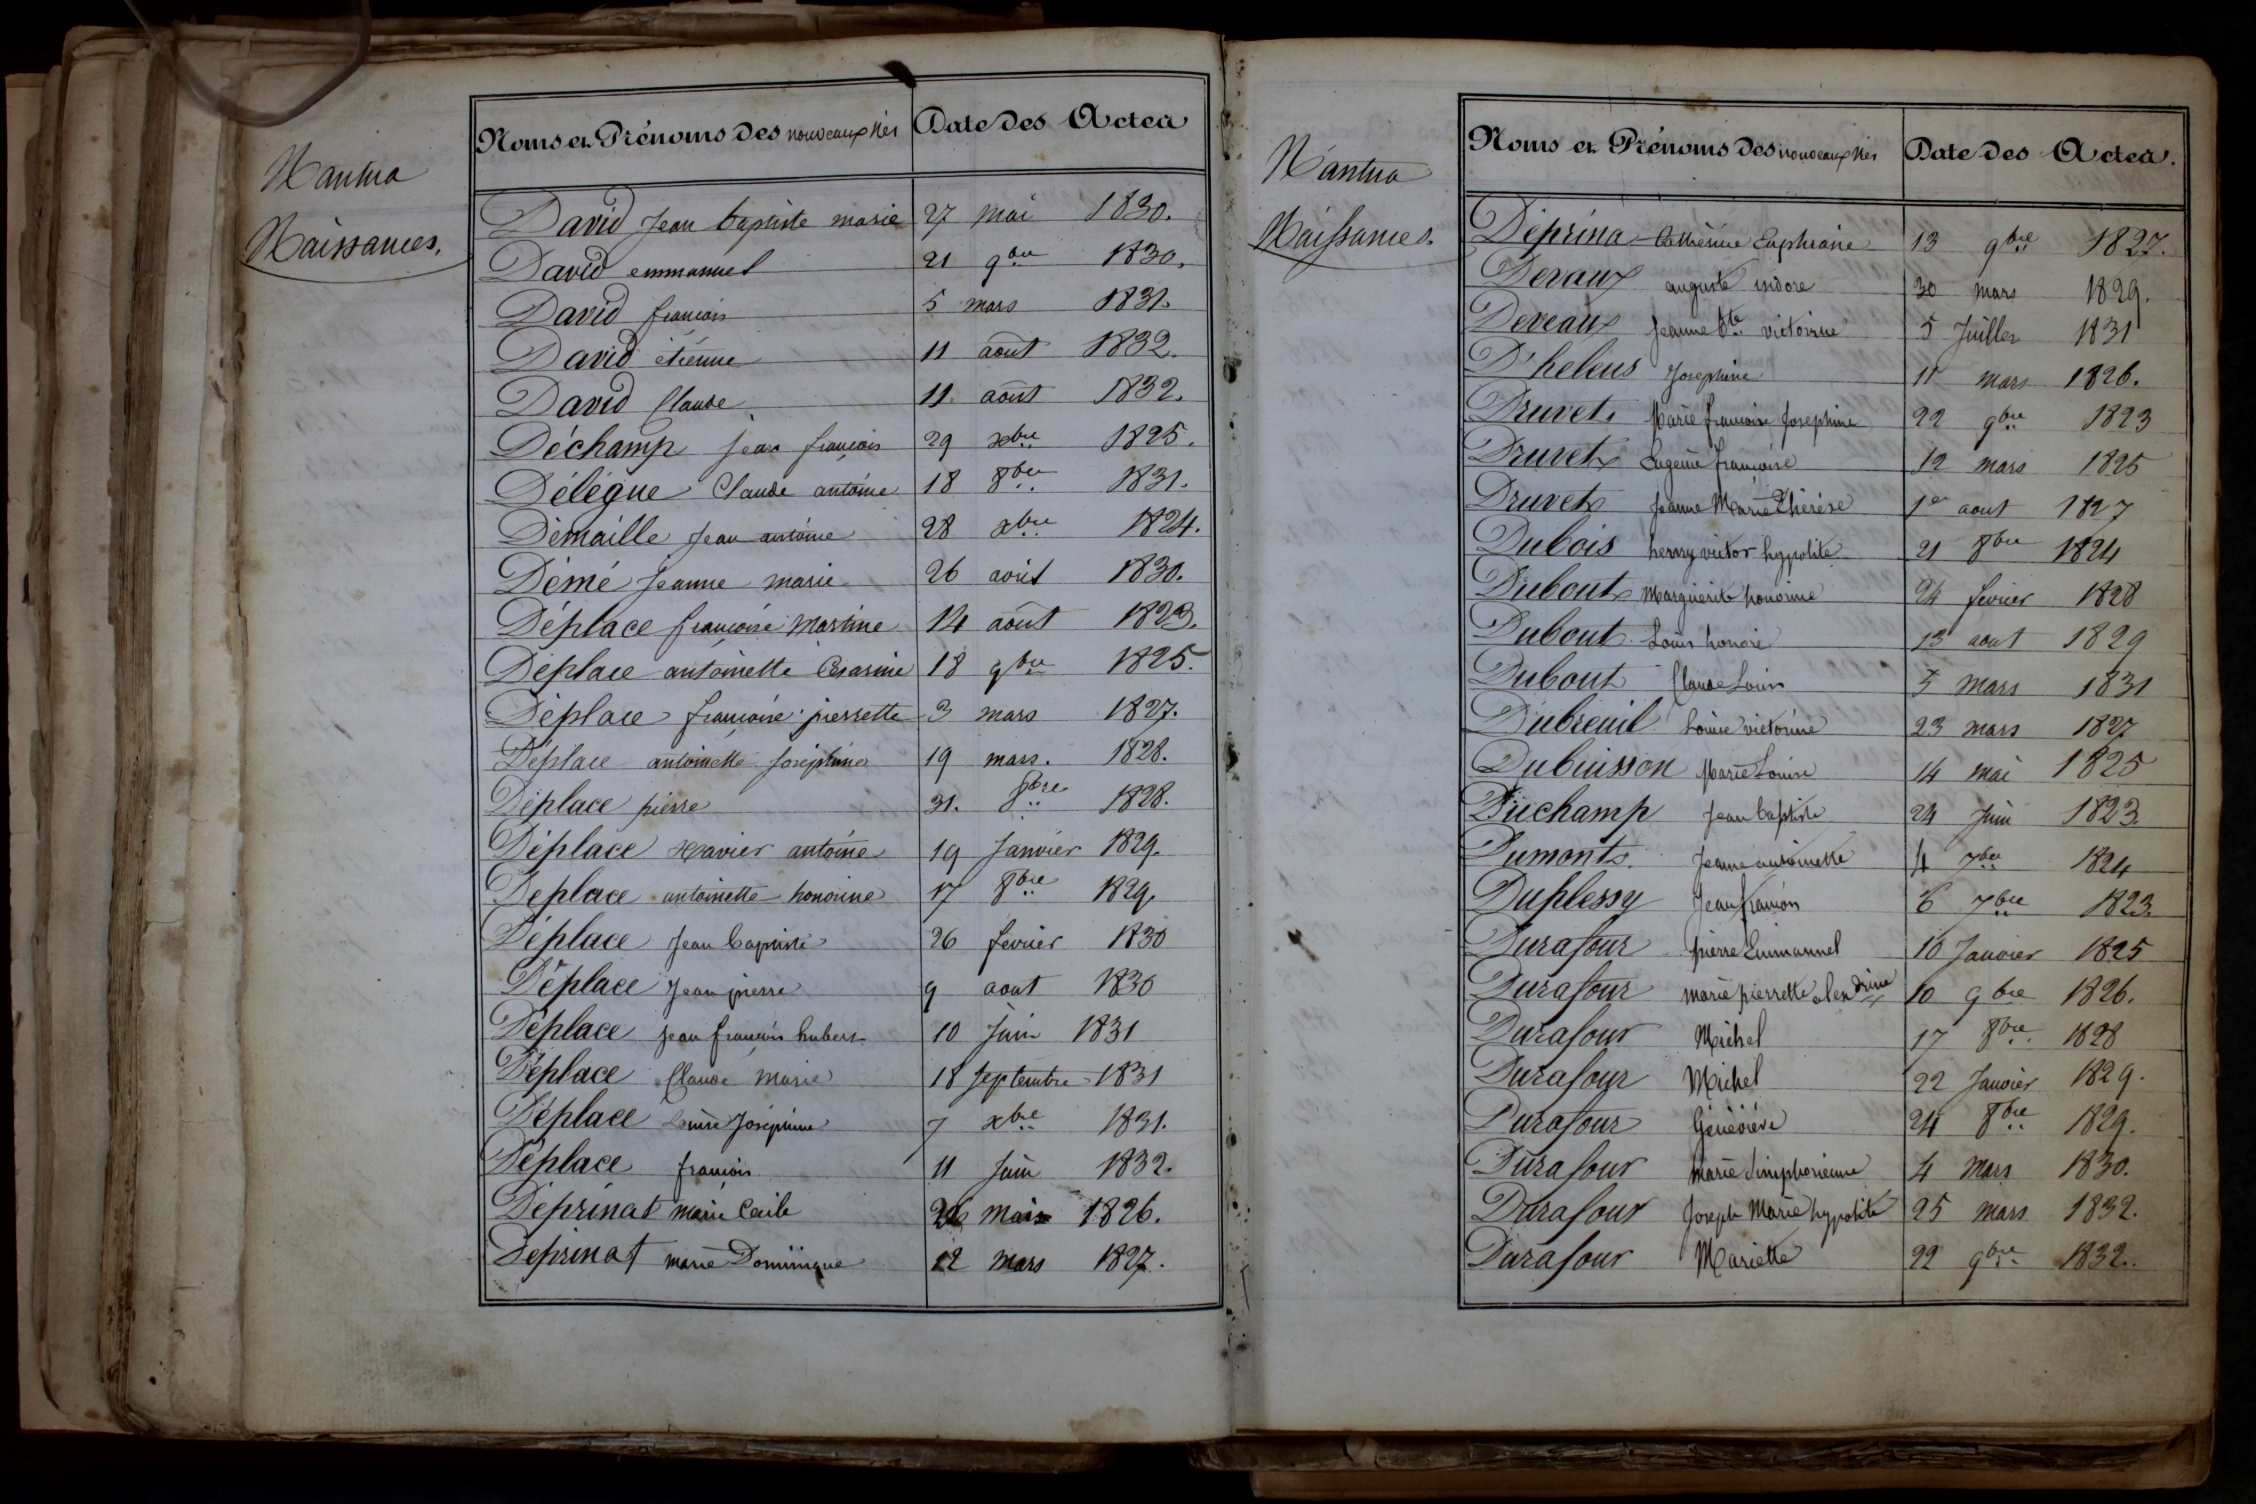 Nantua
Naissances.
Noms et Prénoms des nouveaux nés Date des Actes
David Jean baptiste marie 27 mai 1830.
David emmanuel 21 9bre 1830.
David francois 5 mars 1831.
David étienne 11 août 1832.
David Claude 11 août 1832.
Déchamp Jean françois 29 xbre 1825.
Délégue Claude antoine 18 8bre 1831.
Démaille Jean antoine 28 xbre 1824.
Démé Jeanne marie 26 août 1830.
Déplace françoise Martine 14 août 1823.
Déplace antoinette Césarine 18 9bre 1825.
Déplace françoise pierrette 3 mars 1827.
Déplace antoinette Joséphine 19 mars. 1828.
Déplace pierre 31. 8bre 1828.
Déplace Xavier antoine 19 Janvier 1829.
Déplace antoinette honorine 17 8bre 1829.
Déplace Jean baptiste 26 février 1830
Déplace Jean pierre 9 aout 1830
Déplace Jean françois hubert 10 Juin 1831
Déplace Claude Marie 18 septembre 1831
Déplace Louise Joséphine 7 xbre 1831.
Déplace françois 11 Juin 1832.
Déprinat marie Cécile 26 1826.
Déprinat marie Dominique 12 mars 1827.
Nantua
Naissances.
Noms et Prénoms des nouveaux nés Date des Actes.
Déprina Cathérine Euphrasie 13 9bre 1827.
Devaux auguste isidore 30 mars 1829.
Deveaux Jeanne Bte victoirine 5 Juillet 1831
D'heleus Josephine 11 mars 1826.
Druvet. Marie françoise Josephine 22 9bre 1823
Druvet Eugenie françoise 12 mars 1825
Druvet Jeanne Marie Thérése 1er aout 1827
Dubois henry victor hypolite 21 8bre 1824
Dubout Marguerite honorine 24 fevrier 1828
Dubout Louis honoré 13 aout 1829
Dubout Claude Louis 3 mars 1831
Dubreuil Louise victorine 23 mars 1827
Dubuisson Marie Louise 14 mai 1825
Duchamp Jean baptiste 24 Juin 1823.
Dumont Jeanne antoinette 4 7bre 1824
Duplessy Jean françois 6 7bre 1823.
Durafour pierre Emmanuel 10 Janvier 1825
Durafour marie pierrette alexdrine 10 9bre 1826.
Durafour Michel 17 8bre 1828
Durafour Michel 22 Janvier 1829.
Durafour Généviéve 24 8bre 1829.
Durafour marie Simphorienne 4 mars 1830.
Durafour Joseph Marie hypolite 25 mars 1832.
Durafour Mariette 22 9bre 1832.